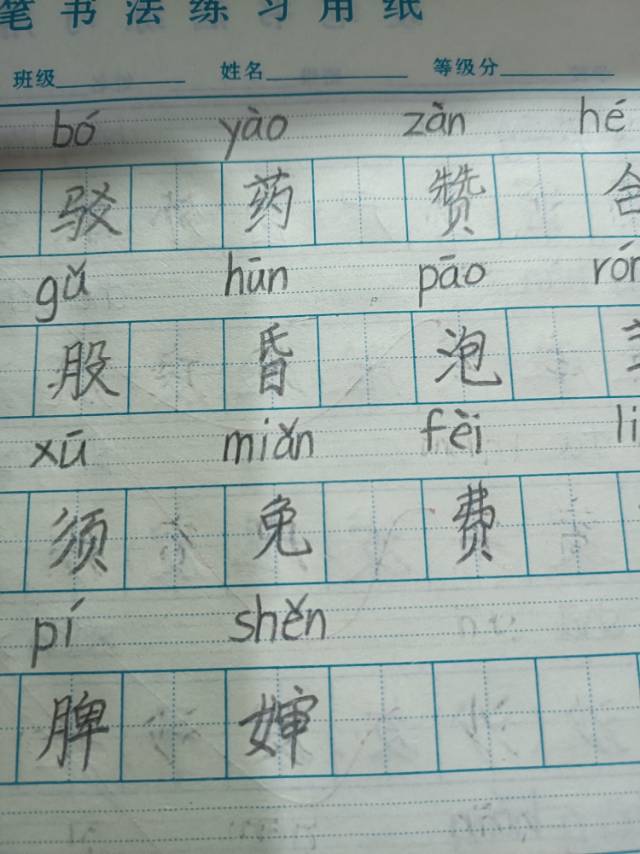 笔书法练习用纸
班级 姓名 等级分
bó yào zàn hé
驳 药 赞
gǔ hūn pāo
股 昏 泡
xū miǎn fèi
须 免 费
pí shěn
脾 婶